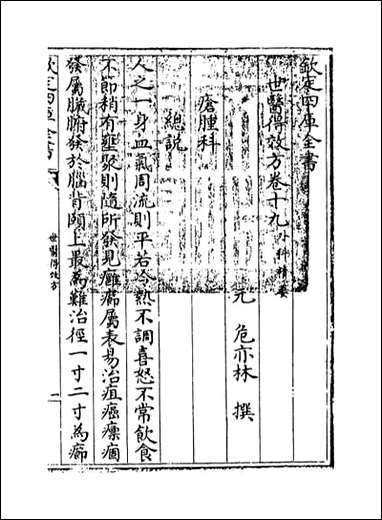 欽定四庫全書
世醫得效方卷十九外科精要
元 危亦林 撰
瘡腫科
總説
人之一身血氣周流則平若冷熱不調喜怒不常飲食
不節稍有壅聚則隨所發見癰癤屬表易治疽癌瘭痼
發屬臟腑發於腦背頤上最為難治徑一寸二寸為癤
欽定四庫全書
世醫得效方